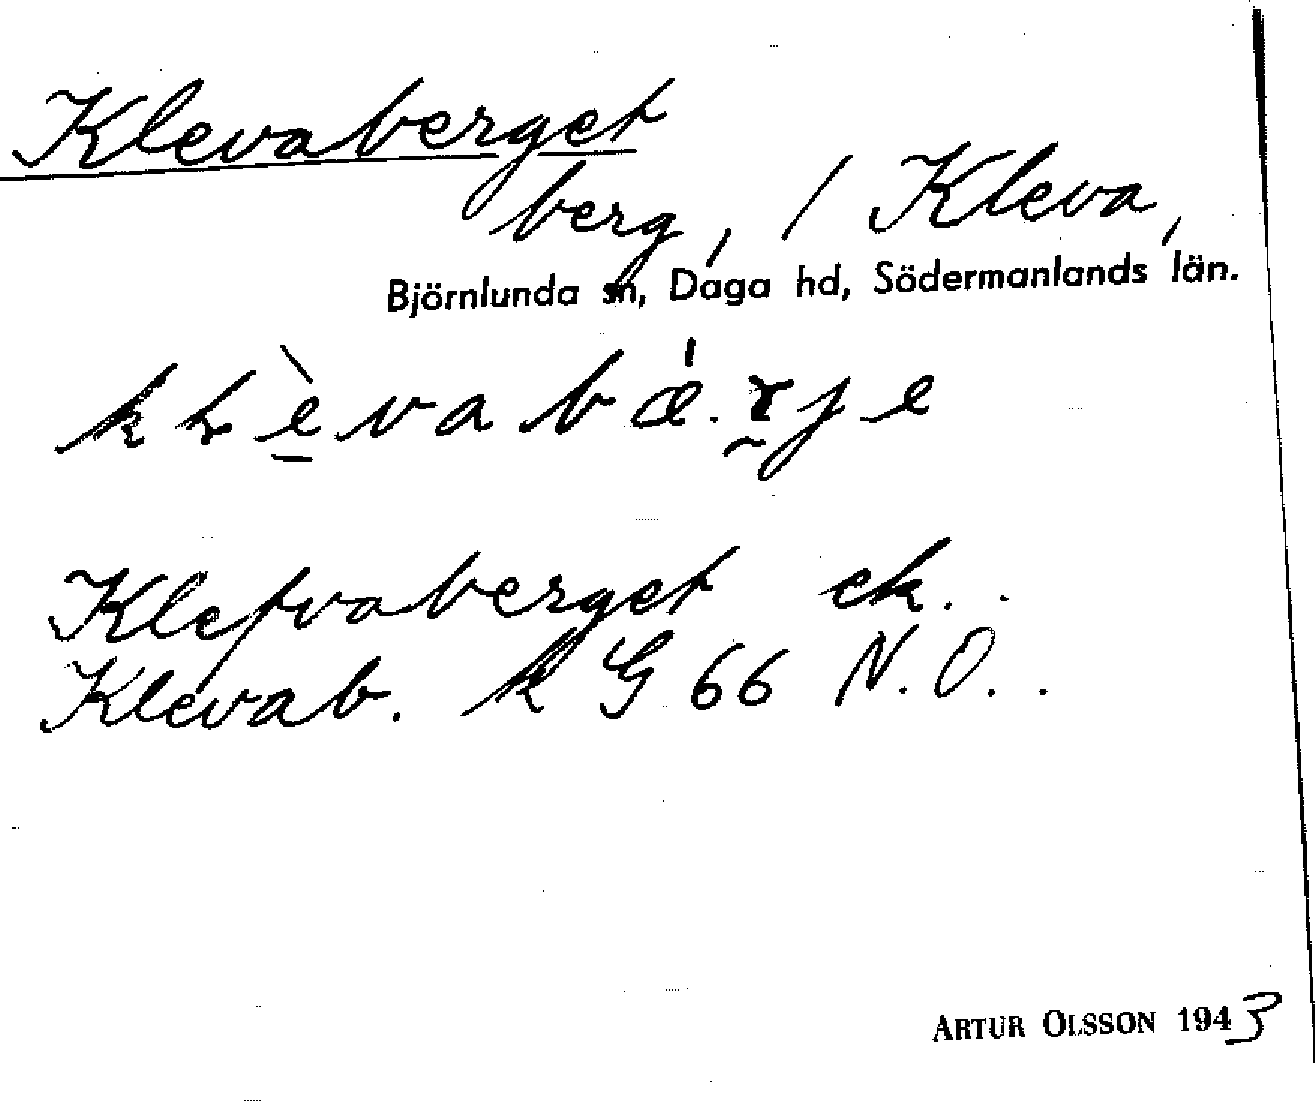 Klevaberget
berg, / Kleva,
Björnlunda sn, Daga hd, Södermanlands län.
Klefvaberget ek.
Klevab. k G 66 N.O.
ARTUR OLSSON 1943